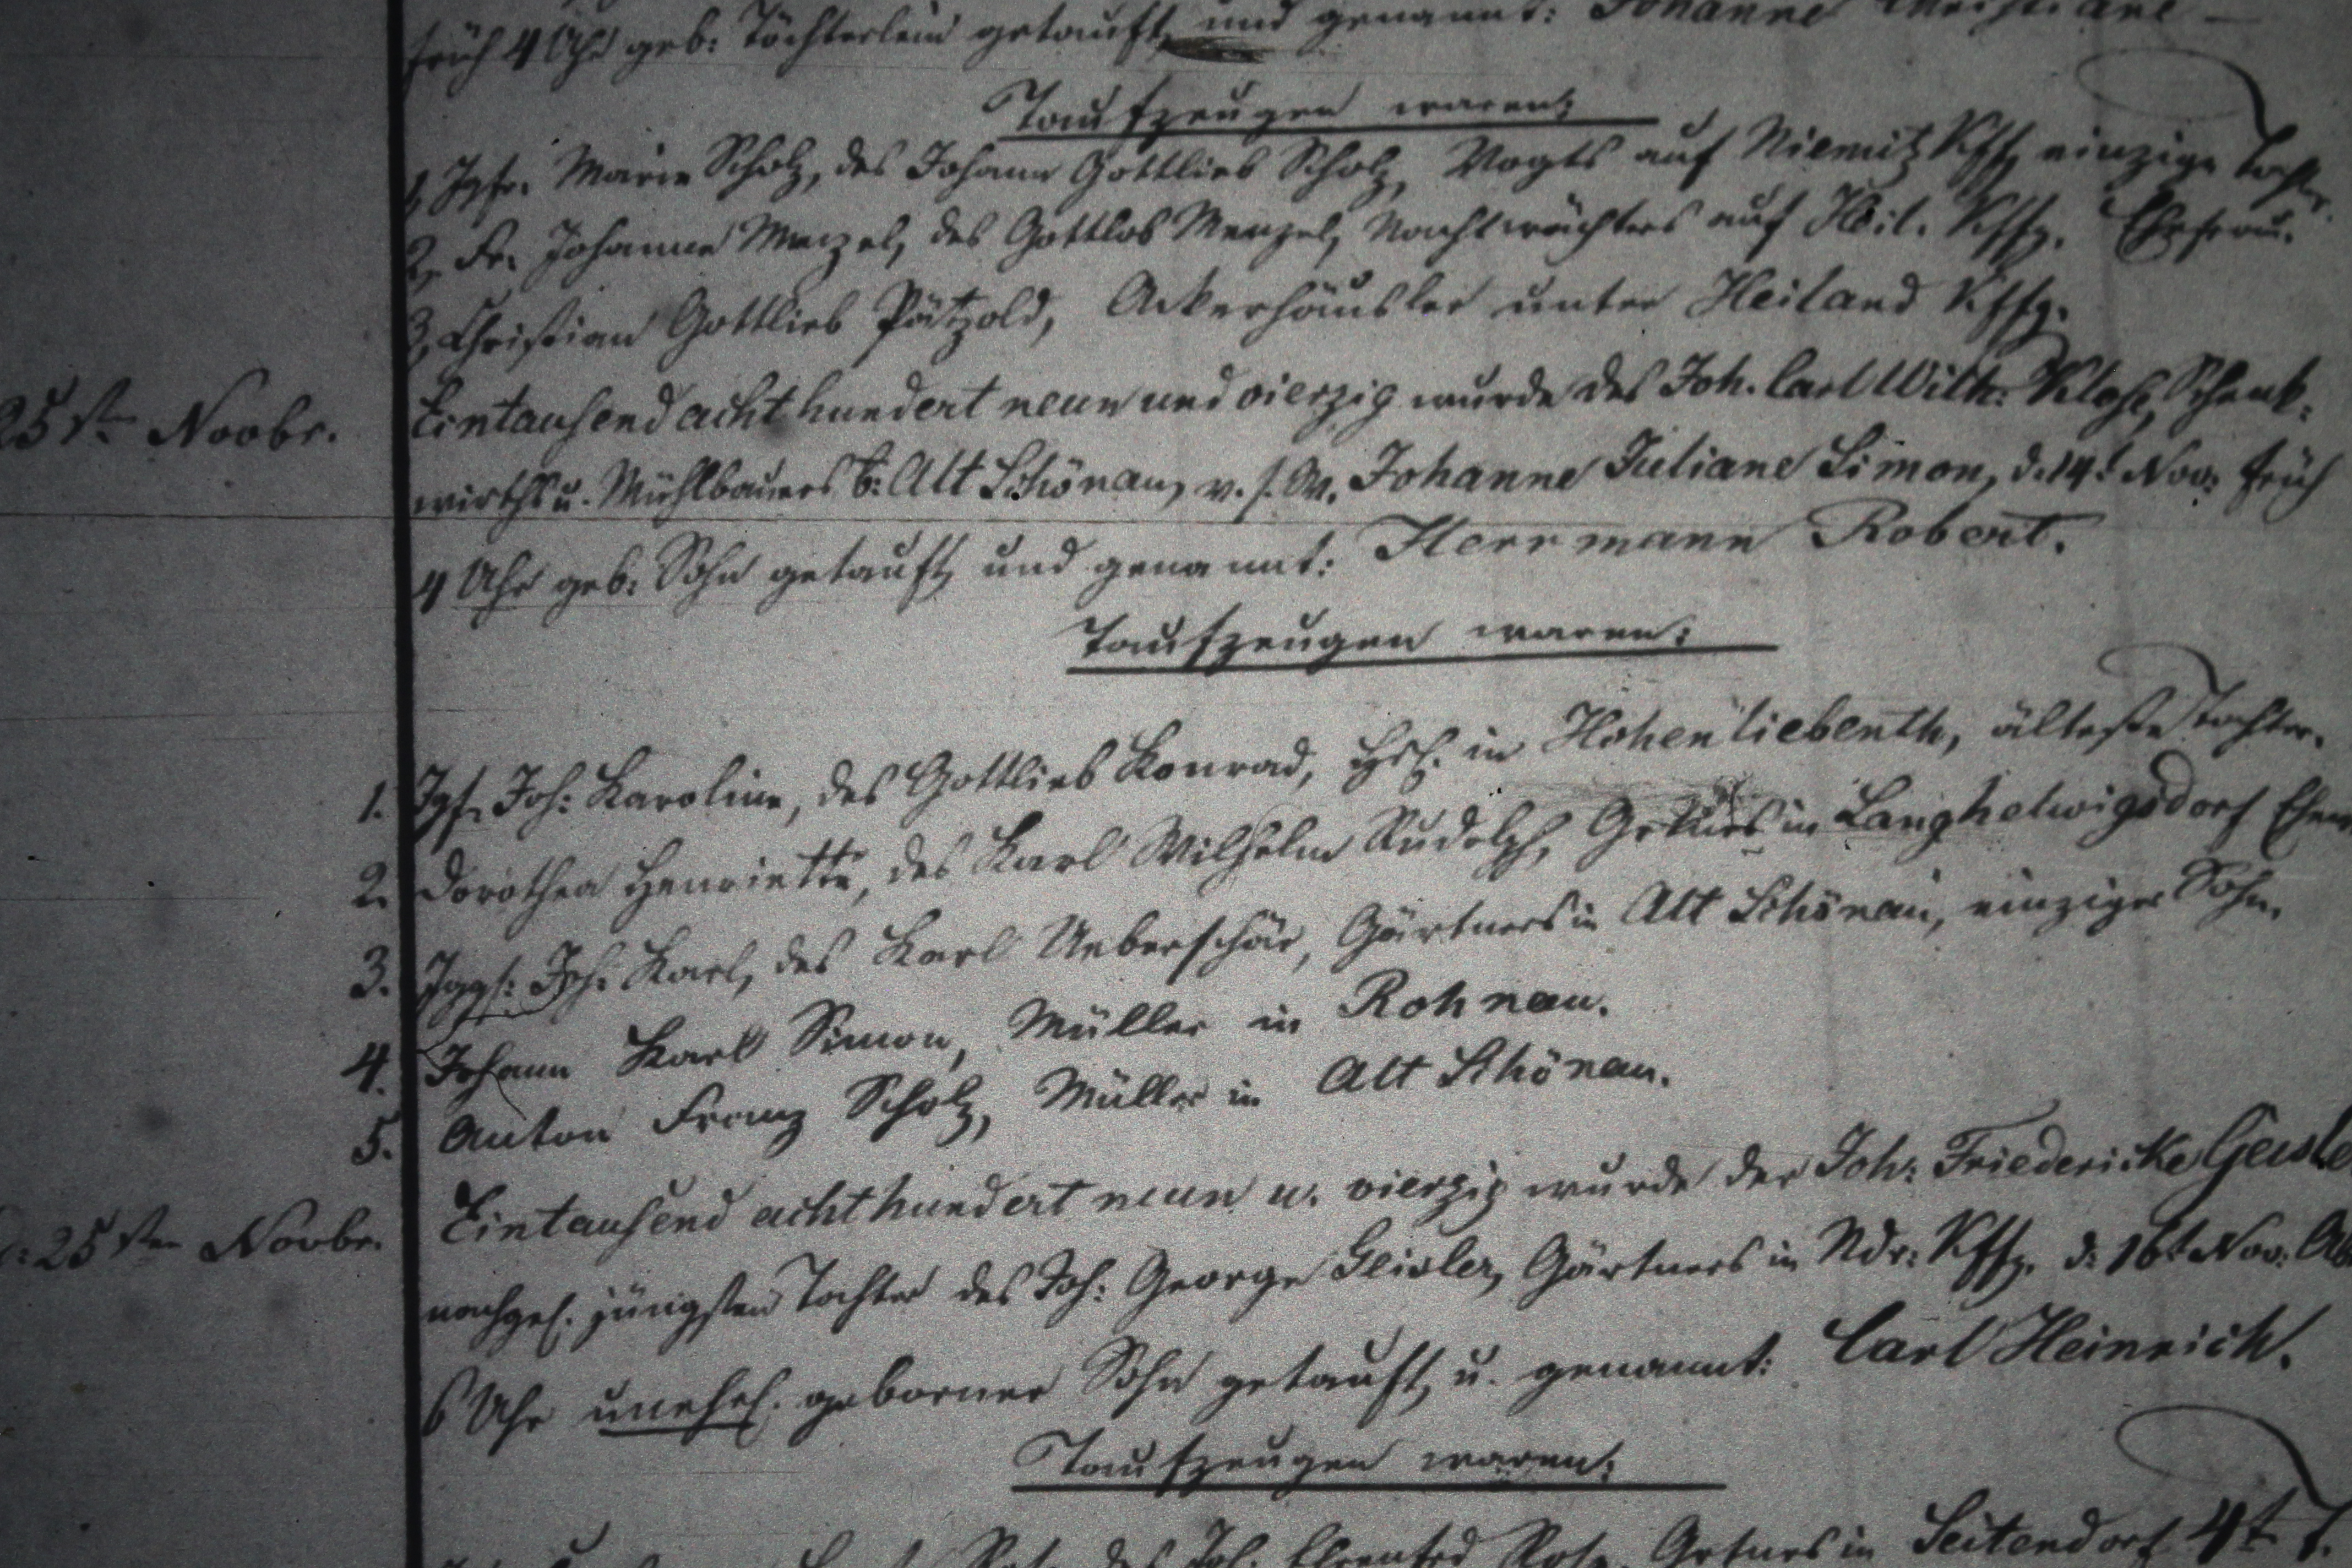 früh 4 Uhr geb: Töchterlein getauft, und genannt: Johanne Christiane
Taufzeugen waren:
1, Jgfr. Marie Scholz, des Johann Gottlieb Scholz, Vogts auf Niemitz Kffg. einzige Tochter.
2, Fr. Johanne Menzel, des Gottlob Menzel, Nachtwächters auf Heil. Kffg. Ehefrau.
3, Christian Gottlieb Pätzold, Ackerhäusler unter Heiland Kffg.
25st. Novbr. Eintausend achthundert neun und vierzig wurde des Joh. Carl Wilh: Klose, Schenk-
wirths u. Mühlbauers b: Alt Schönau, v. s. W. Johanne Juliane Simon, d. 14t Nov: früh
4 Uhr geb: Sohn getauft, und genannt: Herrmann Robert.
Taufzeugen waren:
1. Jgf. Joh: Karoline, des Gottlieb Konrad, Hsl. in Hohenliebenth, älteste Tochter.
2. Dorothea Henriette, des Karl Wilhelm Rudolph, in Langhelwigsdorf
3. Jggs: Joh: Karl, des Karl Ueberschär, Gärtners in Alt Schönau, einziger Sohn.
4. Johann Karl Simon, Müller in Rohnau.
5. Anton Franz Scholz, Müller in Alt Schönau.
d: 25sten Novbr. Eintausend achthundert neun u. vierzig wurde der Joh: Friedericke
nachgel. jüngsten Tochter des Joh: George Geisler, Gärtners in Ndr: Kffg. d: 16t Nov:
6 Uhr unehel. geborner Sohn getauft, u. genannt: Carl Heinrich.
Taufzeugen waren:
des Joh. Ehrenfried in Seitendorf 4t. T.